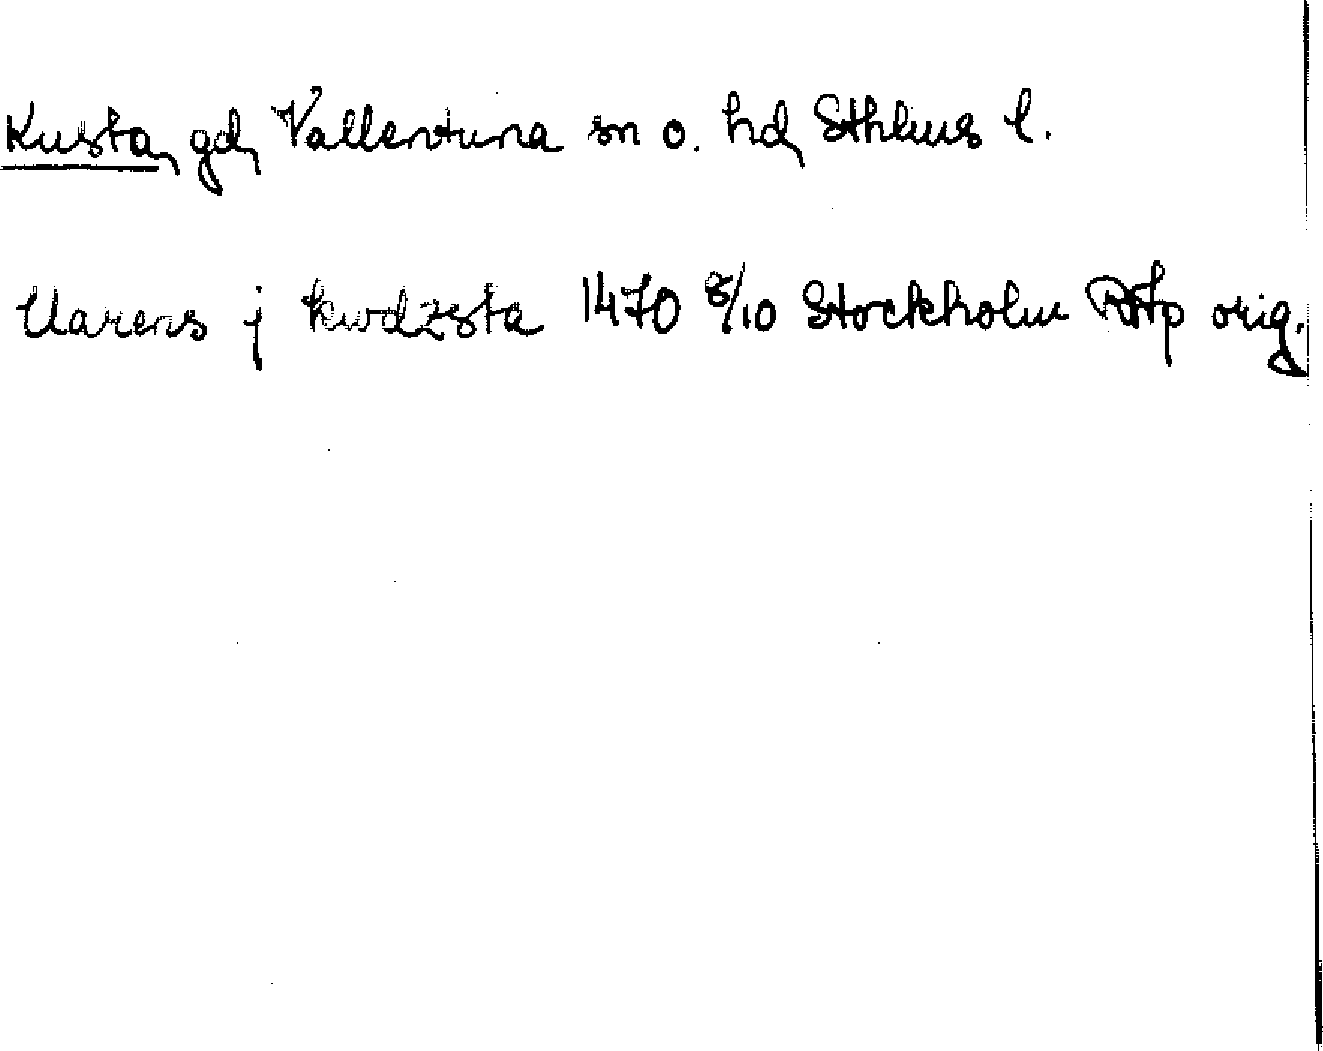 Kusta, gd, Vallentuna sn o. hd, Sthlms l.
Clarens j kwdzsta 1470 8/10 Stockholm RAp orig.